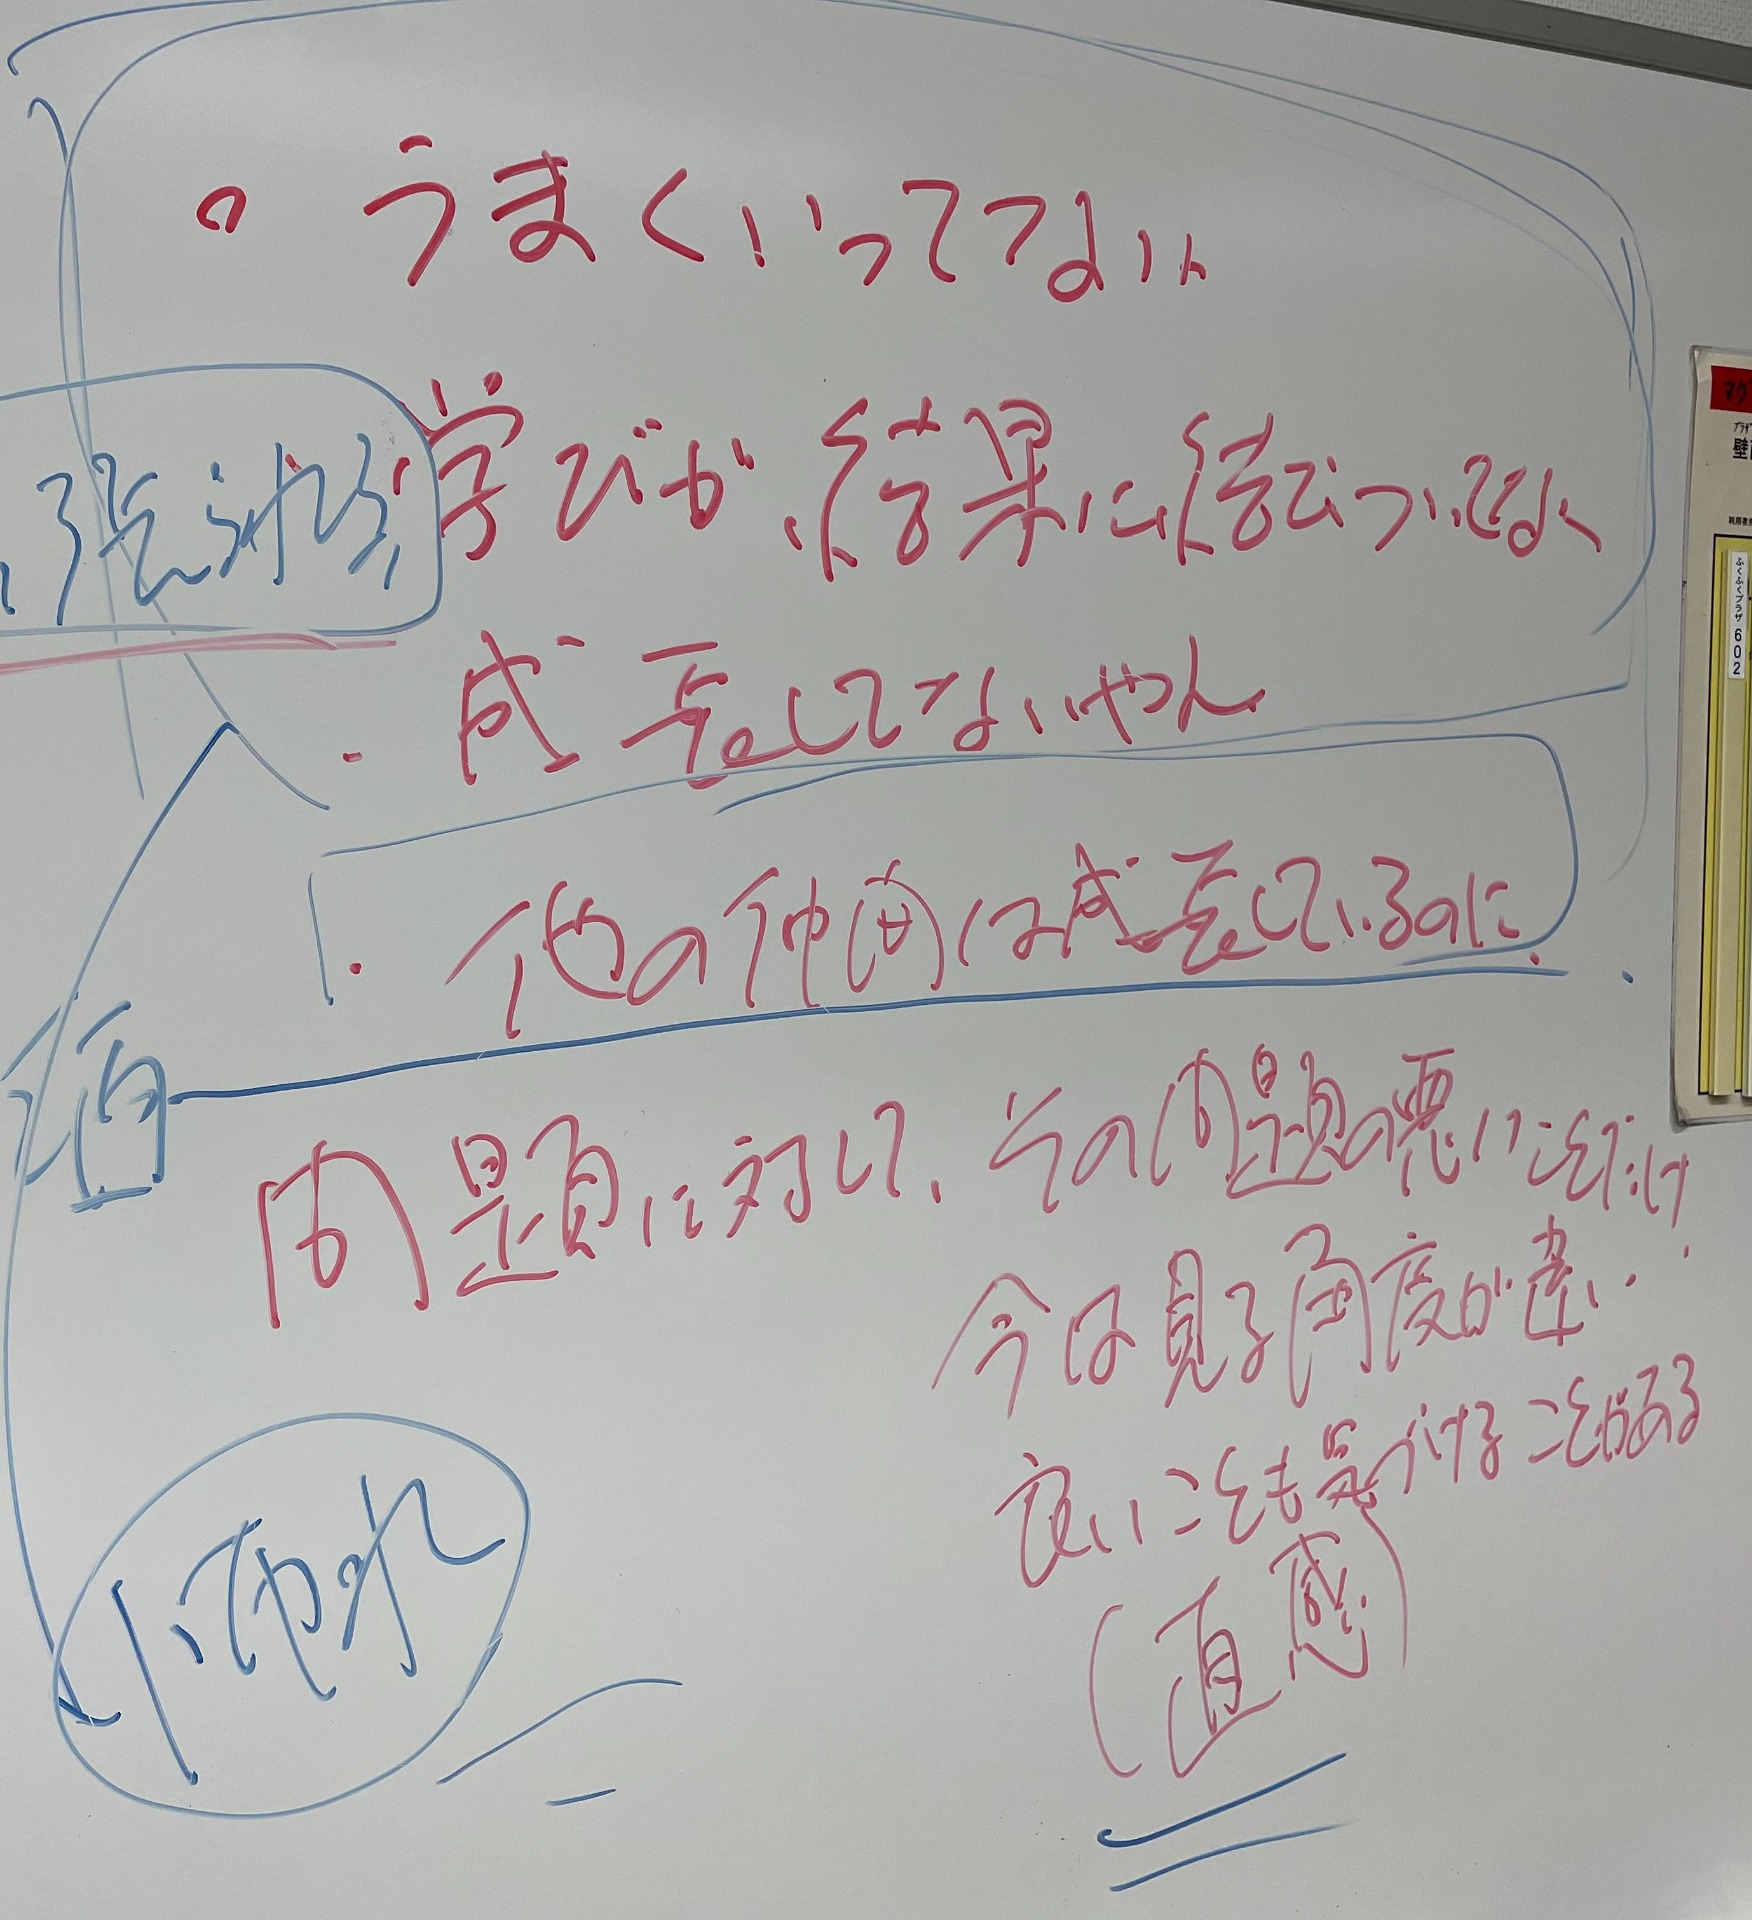 ・うまくいってない
学びが、結果に結びついてない
・成長してないやん
・他の仲間は成長しているのに
問題に対して、その問題の悪いことだけ
今は見る角度が違い
良いことも気づけることがある
(直感)
マク
壁
ふくふくプラザ602